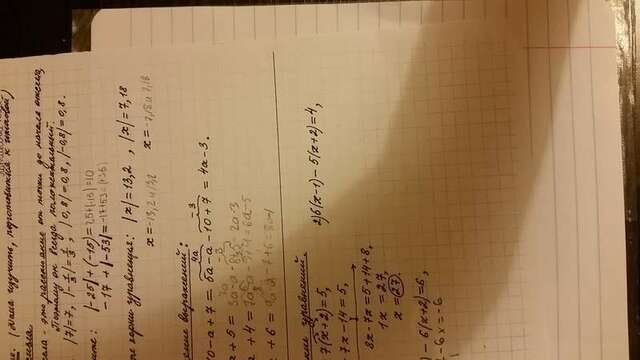 (Дима изучить, подготовиться к итоговой)
это расстояние от точки до начала отсчёта,
Поэтому он всегда положительный.
|7|=7, |-1/3|=1/3, |0,8|=0,8, |-0,8|=0,8.
|-25|+(-15)=25+(-15)=10
-17+|-53|=-17+53=(+36)
корни уравнения: |x|=13,2, |x|=7,18
x=-13,2 и 13,2 x=-7,18 и 7,18
выражений:
4a -3
10-a+7=5a-a-10+7=4a-3.
+5=3a-a-8+5=2a-3
+4=7a-a-9+4=6a-5
+6=9a-a-7+6=8a-1
уравнений.
7(x+2)=5, 2) 6(x-1)-5(x+2)=4,
7x-14=5,
8x-7x=5+14+8,
1x=27,
x=27.
)-6(x+2)=6,
-6x=-6